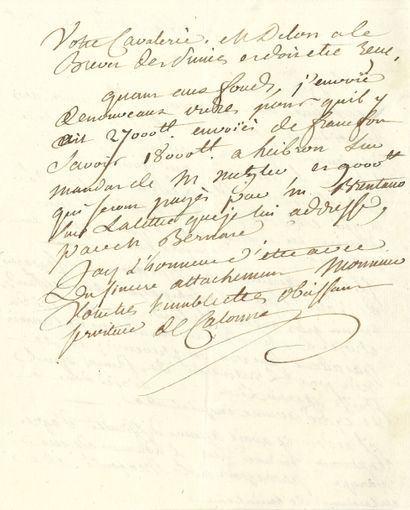 Votre Cavalerie, M Delon a le
Brevet
quant aux fonds, j'envoie
de nouveaux ordres pour qu'il y
ait 27000ᵗᵗ. envoiés de francfort
Savoir 18000ᵗᵗ. a heibron Sur
mandat de M metzler et 9000ᵗᵗ
qui seront payés par m Brentano
Sur La lettre que je lui addresse,
par ech Bernard
J'ay L'honneur d'etre avec
Un sincere attachement Monsieur
Votre tres humble et tres obeissant
serviteur de Calonne